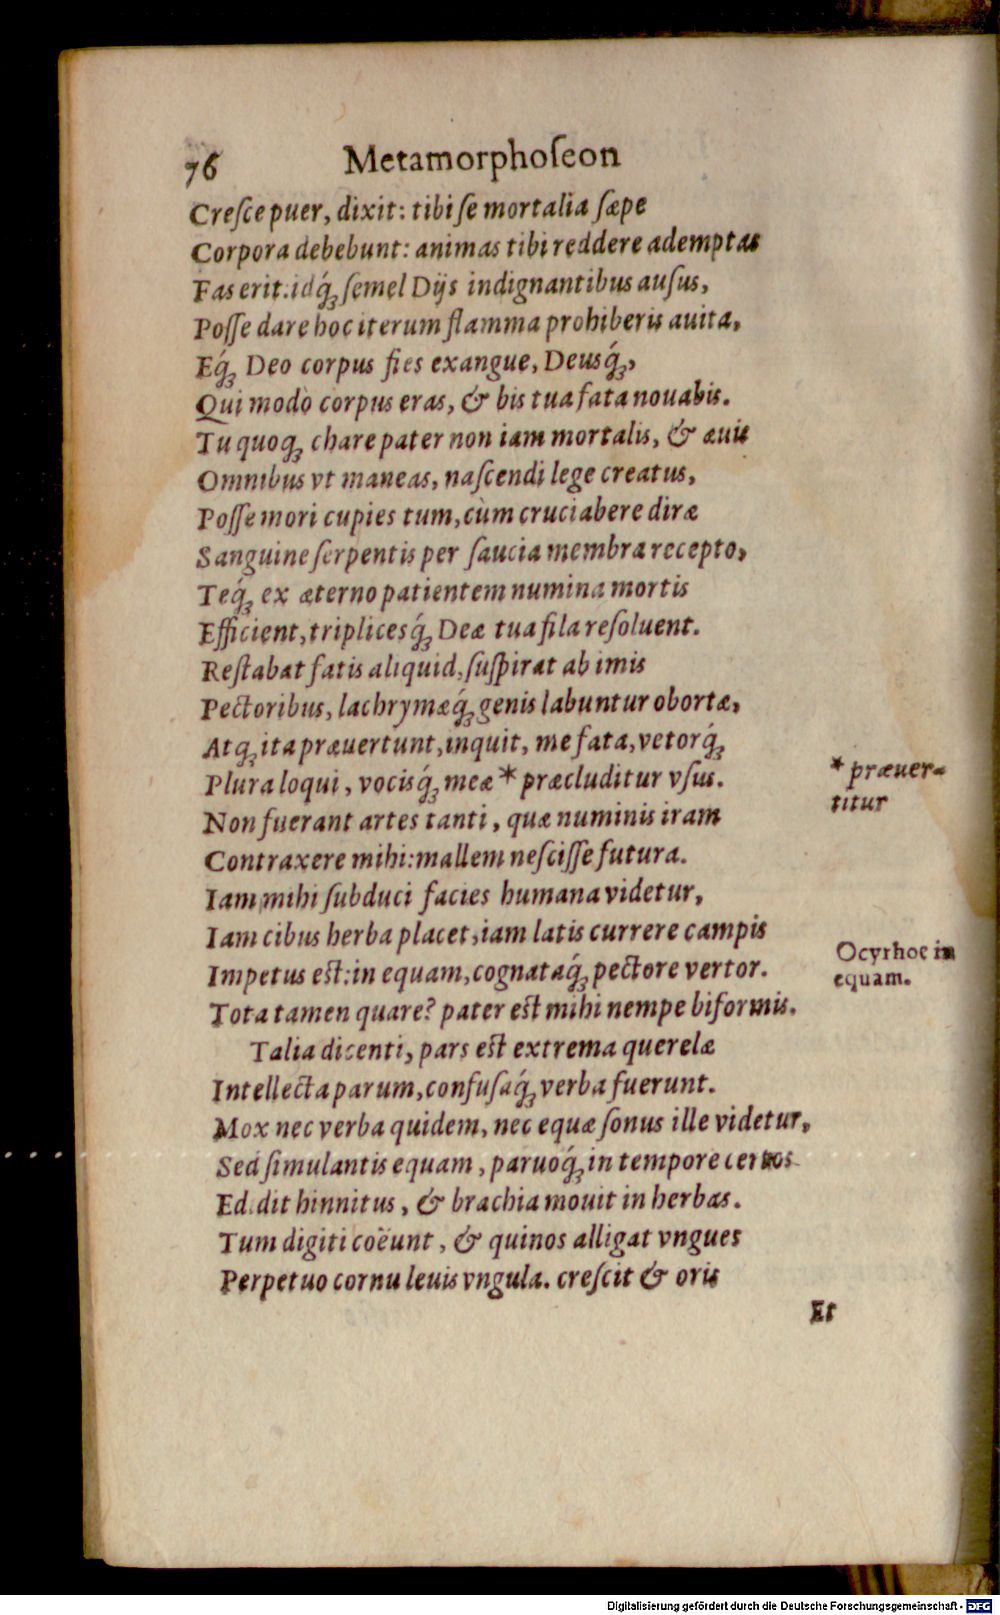 76 Metamorphoſeon
Creſce puer, dixit: tibi ſe mortalia ſæpe
Corpora debebunt: animas tibi reddere ademptas
Fas erit. idq́ꝫ ſemel Dijs indignantibus auſus,
Poſſe dare hoc iterum flamma prohiberis auita,
Eq́ꝫ Deo corpus fies exangue, Deusq́ꝫ,
Qui modò corpus eras, & bis tua fata nouabis.
Tu quoqꝫ chare pater non iam mortalis, & æuis
Omnibus vt maneas, naſcendi lege creatus,
Poſſe mori cupies tum, cùm cruciabere diræ
Sanguine ſerpentis per ſaucia membra recepto,
Teq́ꝫ ex æterno patientem numina mortis
Efficient, triplicesq́ꝫ Deæ tua fila reſoluent.
Reſtabat fatis aliquid, ſuſpirat ab imis
Pectoribus, lachrymæq́ꝫ genis labuntur obortæ,
Atqꝫ ita præuertunt, inquit, me fata, vetorq́ꝫ
Plura loqui, vocisq́ꝫ meæ * præcluditur vſus.
* præuer-
titur
Non fuerant artes tanti, quæ numinis iram
Contraxere mihi: mallem neſciſſe futura.
Iam mihi ſubduci facies humana videtur,
Iam cibus herba placet, iam latis currere campis
Impetus eſt: in equam, cognataq́ꝫ pectore vertor.
Ocyrhoe in
equam.
Tota tamen quare? pater eſt mihi nempe biformis.
Talia dicenti, pars eſt extrema querelæ
Intellecta parum, confuſaq́ꝫ verba fuerunt.
Mox nec verba quidem, nec equæ ſonus ille videtur,
Sed ſimulantis equam, paruoq́ꝫ in tempore certos
Edidit hinnitus, & brachia mouit in herbas.
Tum digiti coëunt, & quinos alligat vngues
Perpetuo cornu leuis vngula. creſcit & oris
Et
Digitalisierung gefördert durch die Deutsche Forschungsgemeinschaft - DFG